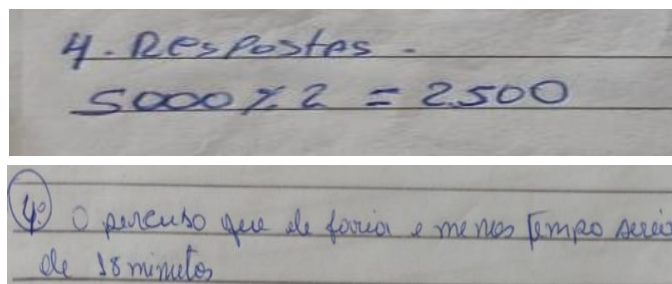 4. Respostas.
5000 % 2 = 2.500
4º O percuso que ele faria e menos tempo seria
de 18 minutos